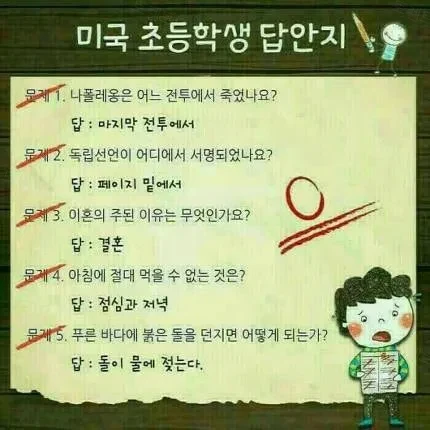 미국 초등학생 답안지
문제 1. 나폴레옹은 어느 전투에서 죽었나요?
답 : 마지막 전투에서
문제 2. 독립선언이 어디에서 서명되었나요?
답 : 페이지 밑에서
문제 3. 이혼의 주된 이유는 무엇인가요?
답 : 결혼
문제 4. 아침에 절대 먹을 수 없는 것은?
답 : 점심과 저녁
문제 5. 푸른 바다에 붉은 돌을 던지면 어떻게 되는가?
답 : 돌이 물에 젖는다.
0